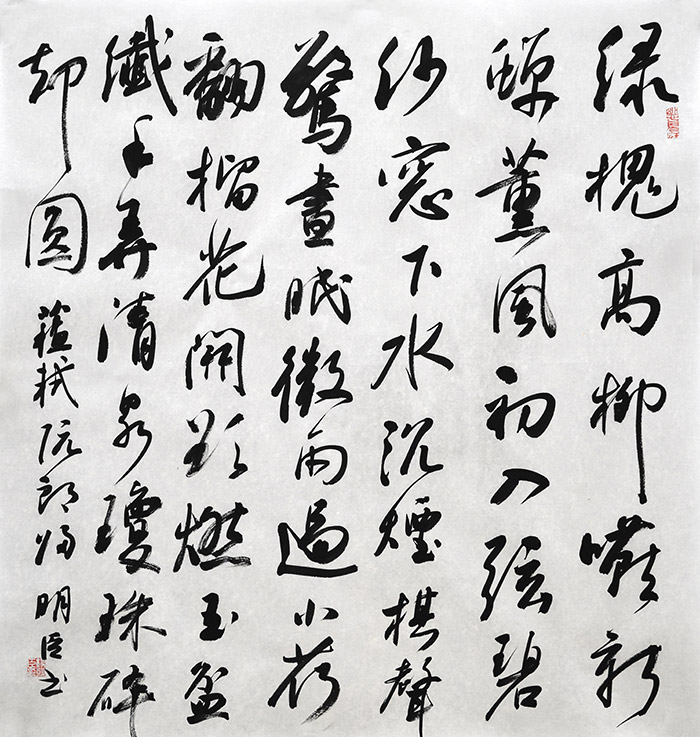 绿槐高柳嚥新
蟬薰風初入弦碧
紗窓下水沉煙棋聲
驚晝眠微雨過小荷
翻榴花開欲燃玉盆
纖手弄清泉瓊珠碎
却圓 蘇軾阮郎歸 明臣书